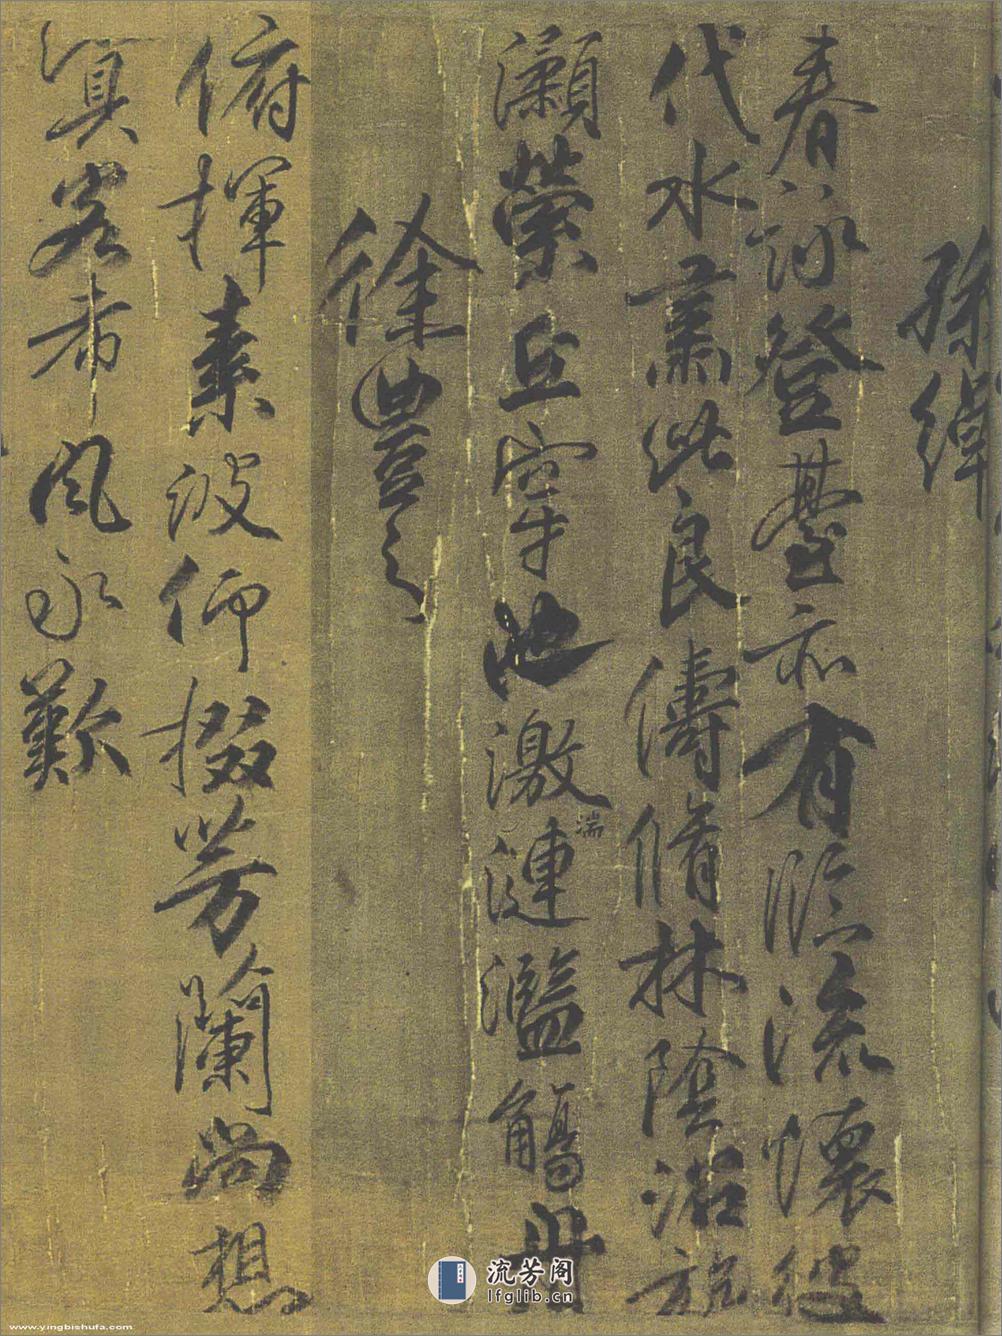 孫綽
春詠登臺亦有臨流懷彼
代水肅此良儔脩林陰沼旋
瀨縈丘穿池激湍漣濫觴舟
徐豐之
俯揮素波仰掇芳蘭尚想
客希風永歎
流芳阁
lfglib.cn
www.yingbishufa.com